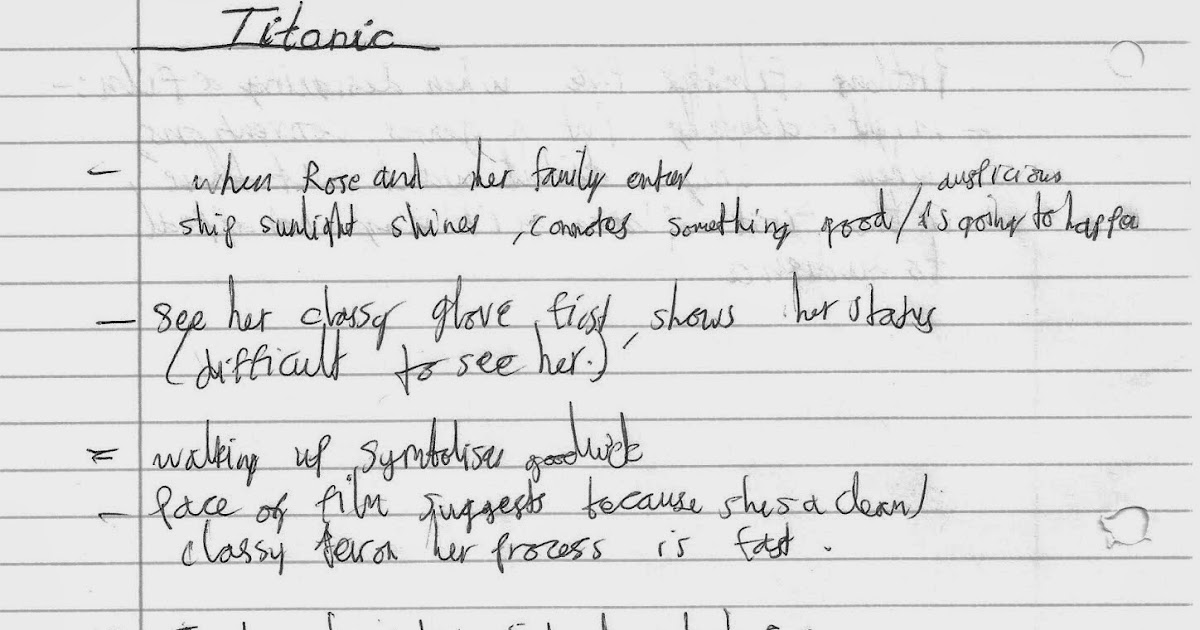 Titanic
- when Rose and her family enter
ship sunlight shines, connotes something good / auspicious is going to happen
- see her classy glove first, shows her status
(difficult to see her.)
= walking up symbolises goodluck
- Pace of film suggests because shes a clean/
classy person her process is fast.